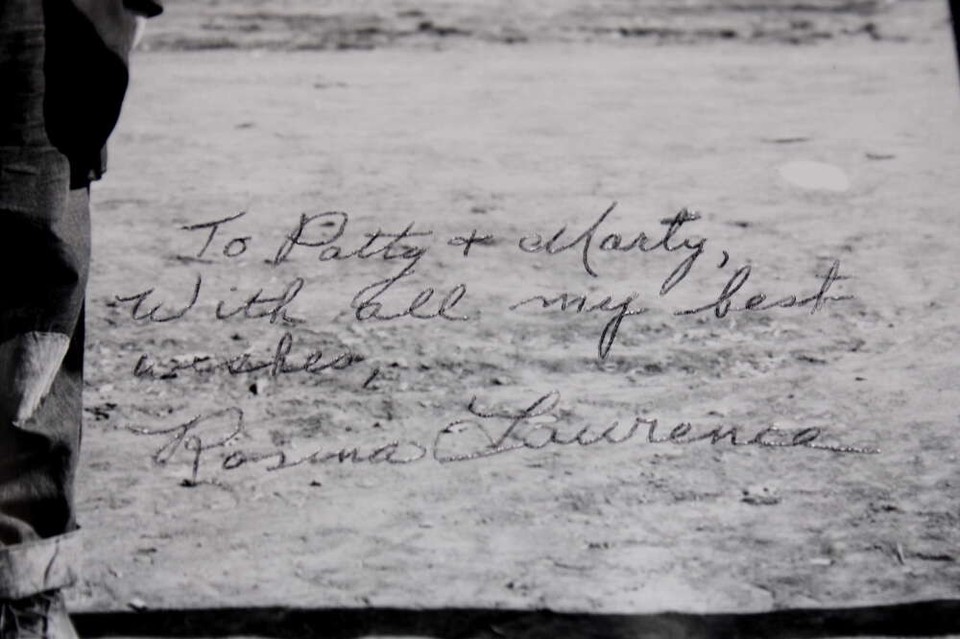 To Patty + Marty,
With all my best
wishes,
Rosina Lawrence